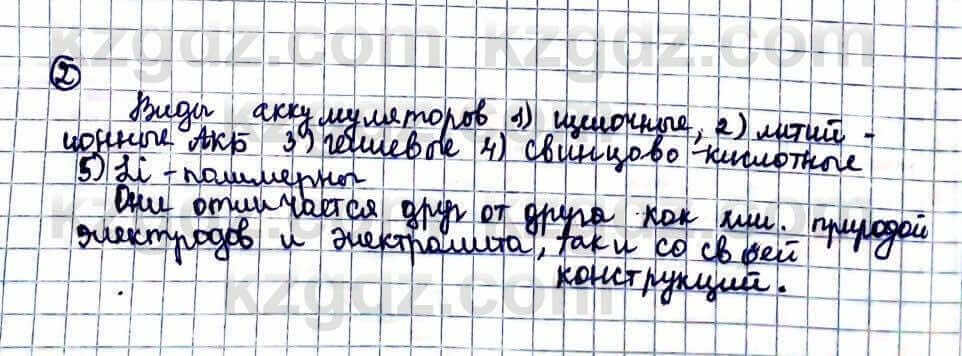 kzgdz.com kzgdz.com
2
Виды аккумуляторов 1) щелочные, 2) литий -
ионные АКБ 3) гелиевые 4) свинцово-кислотные
5) Li - полимерны
Они отличается друг от друга как хим. природой
электродов и электролита, так и со своей
конструкций.
kzgdz.com kzgdz.com